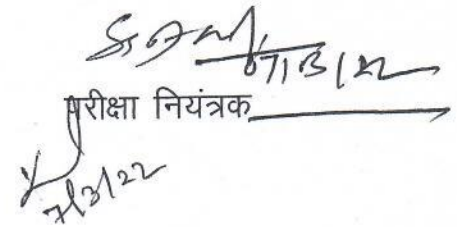 07/3/22
परीक्षा नियंत्रक
7/3/22